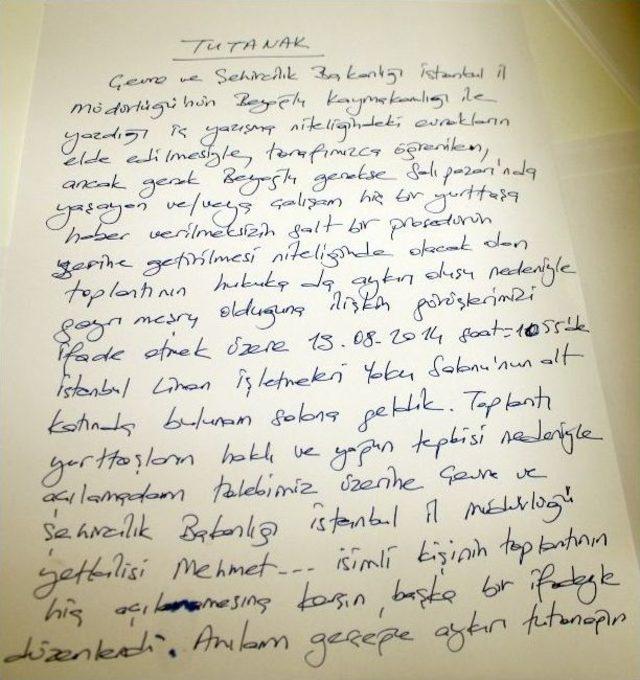 TUTANAK
Çevre ve Şehircilik Bakanlığı İstanbul il
müdürlüğü'nün Beyoğlu Kaymakamlığı ile
yazdığı iç yazışma niteliğindeki evrakların
elde edilmesiyle, tarafımızca öğrenilen,
ancak gerek Beyoğlu gerekse Salıpazarı'nda
yaşayan ve/veya çalışan hiç bir yurttaşa
haber verilmeksizin salt bir prosedürün
yerine getirilmesi niteliğinde olacak olan
toplantının hukuka da aykırı oluşu nedeniyle
gayri meşru olduğuna ilişkin görüşlerimizi
ifade etmek üzere 13.08.2014 saat=1055'de
İstanbul Liman İşletmeleri Yolcu Salonu'nun alt
katında bulunan salona geldik. Toplantı
yurttaşların haklı ve yoğun tepkisi nedeniyle
açılamadan talebimiz üzerine Çevre ve
Şehircilik Bakanlığı İstanbul il müdürlüğü
yetkilisi Mehmet... isimli kişinin toplantının
hiç açılmamasına karşın, başka bir ifadeyle
düzenlendi. Anılan gerçeğe aykırı tutanağın